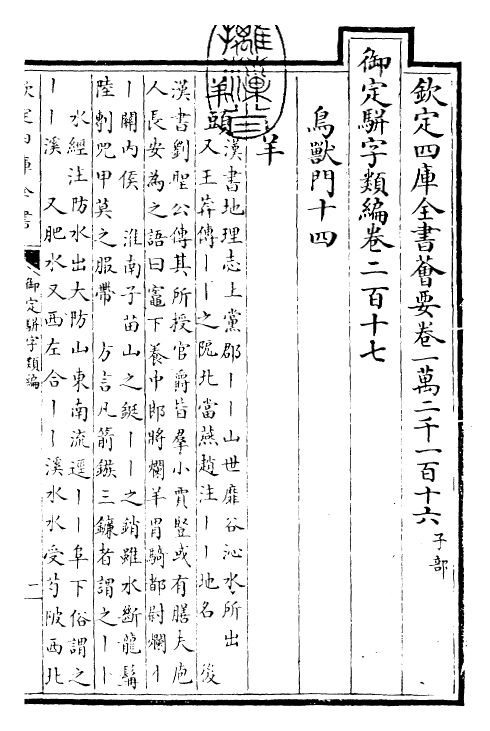 欽定四庫全書薈要卷一萬二千一百十六 子部
御定騈字類編卷二百十七
鳥獸門十四
羊
羊頭 漢書地理志上黨郡丨丨山世靡谷沁水所出
又王莽傳丨丨之阨北當燕趙注丨丨地名 後
漢書劉聖公傳其所授官爵皆羣小賈豎或有膳夫庖
人長安為之語曰竈下養中郎將爛羊胃騎都尉爛丨
丨關內侯 淮南子苗山之鋋丨丨之銷雖水斷龍髯
陸剸兕甲莫之服帶 方言凡箭鏃三鐮者謂之丨丨
水經注防水出大防山東南流逕丨丨阜下俗謂之
丨丨溪 又肥水又西左合丨丨溪水水受芍陂西北
欽定四庫全書
御定騈字類編
一